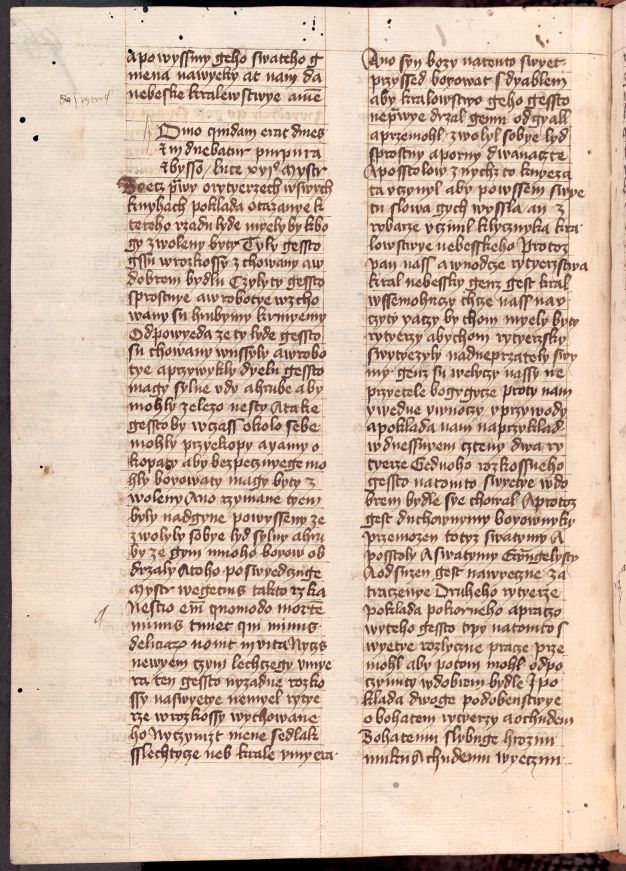 apowyssiny geho swateho g
mena nawyeky at nam da
nebeske kralewstwye amē
Omo quidam erat dives
& induebatur purpura
& bysso luce xvjo Mystr
knyhach poklada otazanye k
tereho rzadu lyde myely by kbo
gy zwoleny byty Tyly gessto
gssu wrozkossy zchowany aw
dobrem bydlu Czylyty gessto
sprostnye awrobotye wzcho
wany su hrubymy krmyemy
Odpowyeda ze ty lyde gessto
su chowany wnssyly awrobo
tye aprzywykly dyelu gessto
magy sylne udy ahrube aby
mohly zelezo nesty Atake
gessto by wczass okolo sebe
mohly przyekopy ayamy o
kopaty aby bezpecznyege mo
hly boyowaty magy byty z
woleny Ano rzymane tyem
byly nadgyne powysseny ze
zwolyly sobye lyd sylny ahru
by ze gym mnoho boyow ob
drzaly Atoho poswyedczuge
Mystr wegecius takto rzka
Nescio em quomodo morte
minus timet qui minus
deliciarum novit in vita Nyczs
newyem czym lechczegy umye
ra ten gessto nyzadne rozko
ssy naswyetye nemyel rytye
rze wrozkossy wychowane
ho Nyczymzt mene sedlak
sslechtycze neb krale umyera
Ano syn bozy natento swyet
przyssed boyowat sdyablem
aby kralowstwo geho gessto
neprwye drzal gemu odgyall
apremohl zwolyl sobye lyd
sprostny aporny dwanaczte
Apostolow znychz to knyeza
ta uczynyl aby powssem swye
tu slowa gych wyssla an z
robarze uczinil klycznyka kra
lowstwye nebesskeho Protoz
pan nass awuodcze rytyerzstwa
kral nebessky genz gest kral
wssemohuczy chcze nass nau
czyty yaczy by chom myely byty
rytyerzy abychom rytyerssky
swytyezyly nadneprzately swy
my genz su welyczy nassy ne
przyetele bogygycze proty nam
ywedne ywnoczy yprzywody
apoklada nam naprzyklad
wdnessnyem czteny dwa ry
tyerze Gednoho rozkossneho
gessto natomto swyetye wdo
brem bydle sye chowal Aprotoz
gest duchownymy boyownyky
przemozen totyz swatymy A
posstoly Aswatymy Ewangelysty
Aodsuzen gest nawyeczne za
traczenye Druheho rytyerze
poklada pokorneho apraczo
wyteho gessto trpy natomto s
wyetye rozlyczne pracze prze
mohl aby potom mohl odpo
czynuty wdobrem bydle J po
klada dwoge podobenstwye
o bohatem rytyerzy aochudem
Bohatemu slybuge hroznu
muku Achudemu wyecznu